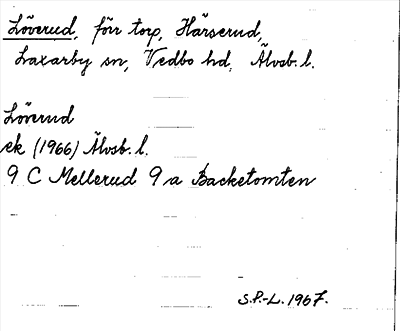 Löverud, förr torp, Härserud,
Laxarby sn, Vedbo hd, Älvsb. l.
Löverud
ek (1966) Älvsb. l.
9 C Mellerud 9 a Backetomten
S.P.-L. 1967.